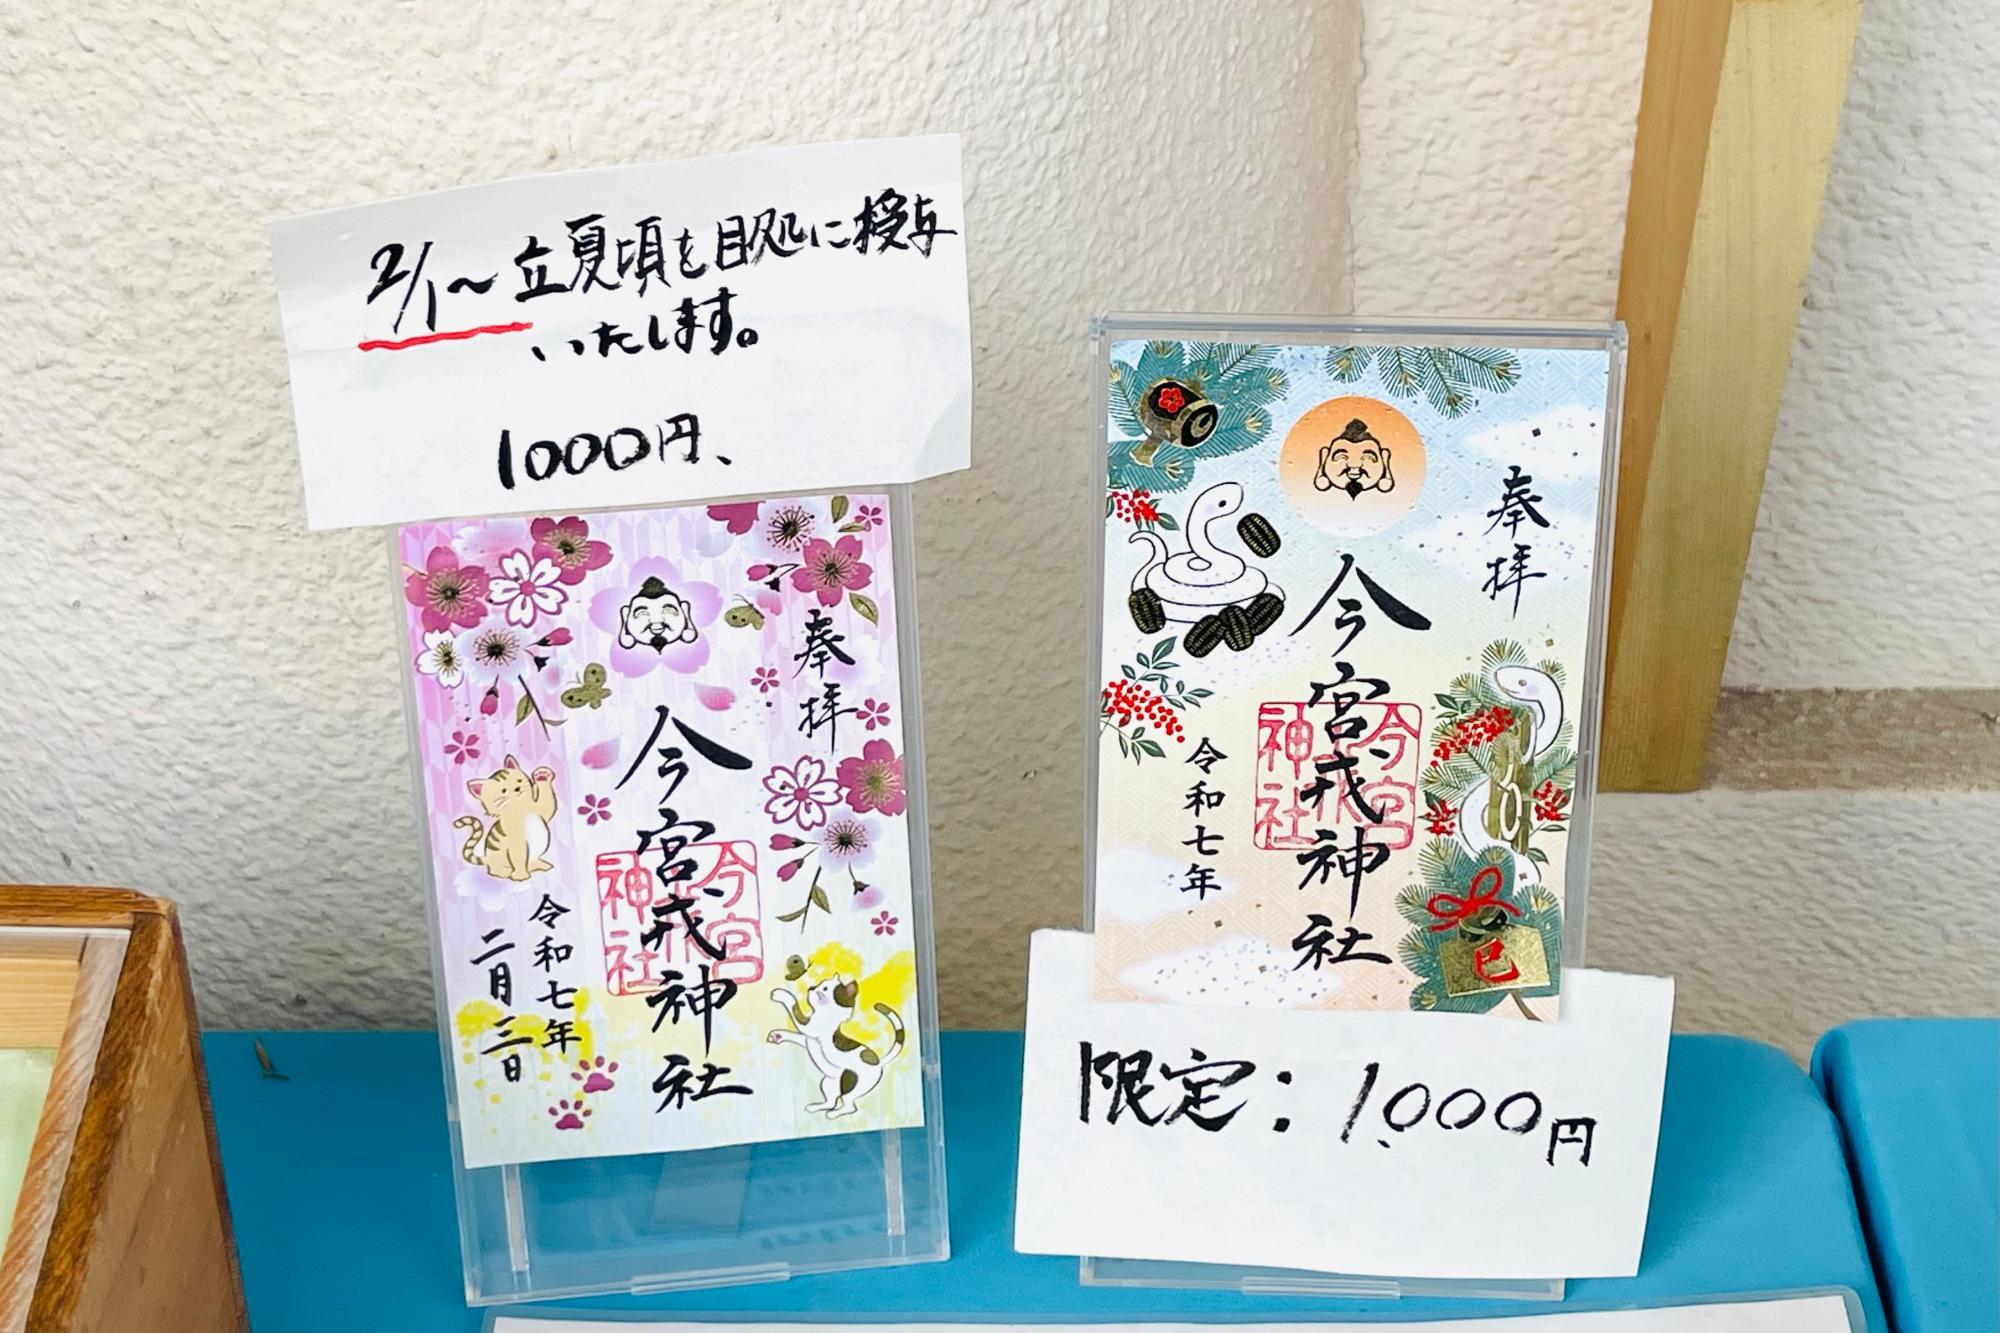 2/1〜立夏頃を目処に授与
いたします。
1000円、
奉拝
今宮戎神社
今宮戎神社
令和七年
二月三日
奉拝
今宮戎神社
今宮戎神社
令和七年
巳
限定：1,000円